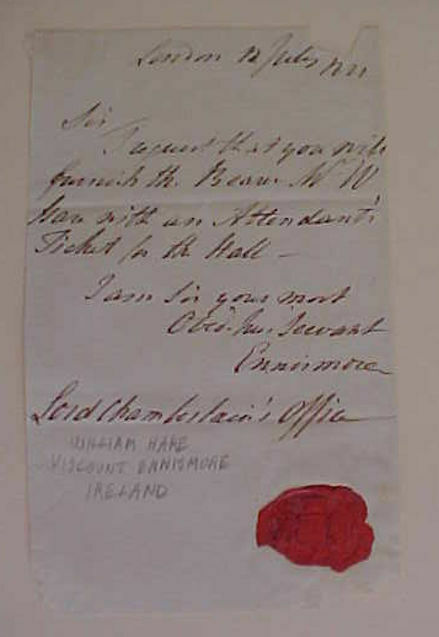 London 12 July
Sir
I request that you will
furnish the Bearer Mr W
Hare with an Attendant's
Ticket for the Hall —
I am Sir your most
Obed. hue Servant
Ennismore
Lord Chamberlain's Office
WILLIAM HARE
VISCOUNT ENNISMORE
IRELAND